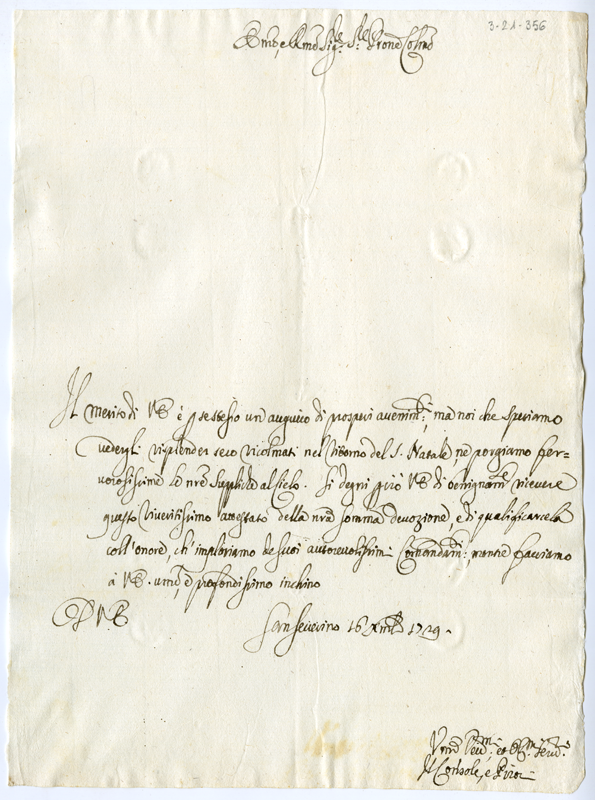 3-21-356
Emo, e Rmo Sig.re S.re Prone Colmo
Il merito di VE è p se stesso un augurio di prosperi avenim.ti; ma noi che speriamo
vedergli risplender seco ricolmati nel ritorno del S. Natale, ne porgiamo fer=
vorosissime le nre suppliche al Cielo. Si degni però VE di benignam.te ricevere
questo riveritissimo attestato della nra somma devozione, e di qualificarcela
coll'onore, ch'imploriamo de suoi autorevolissimi Comandam.ti; mentre facciamo
à VE. umo, e profondissimo inchino
D VE
Sanseverino 16 Xmbre 1729.
Vmi Devmi et Obmi Servi
Il Console, e Priori